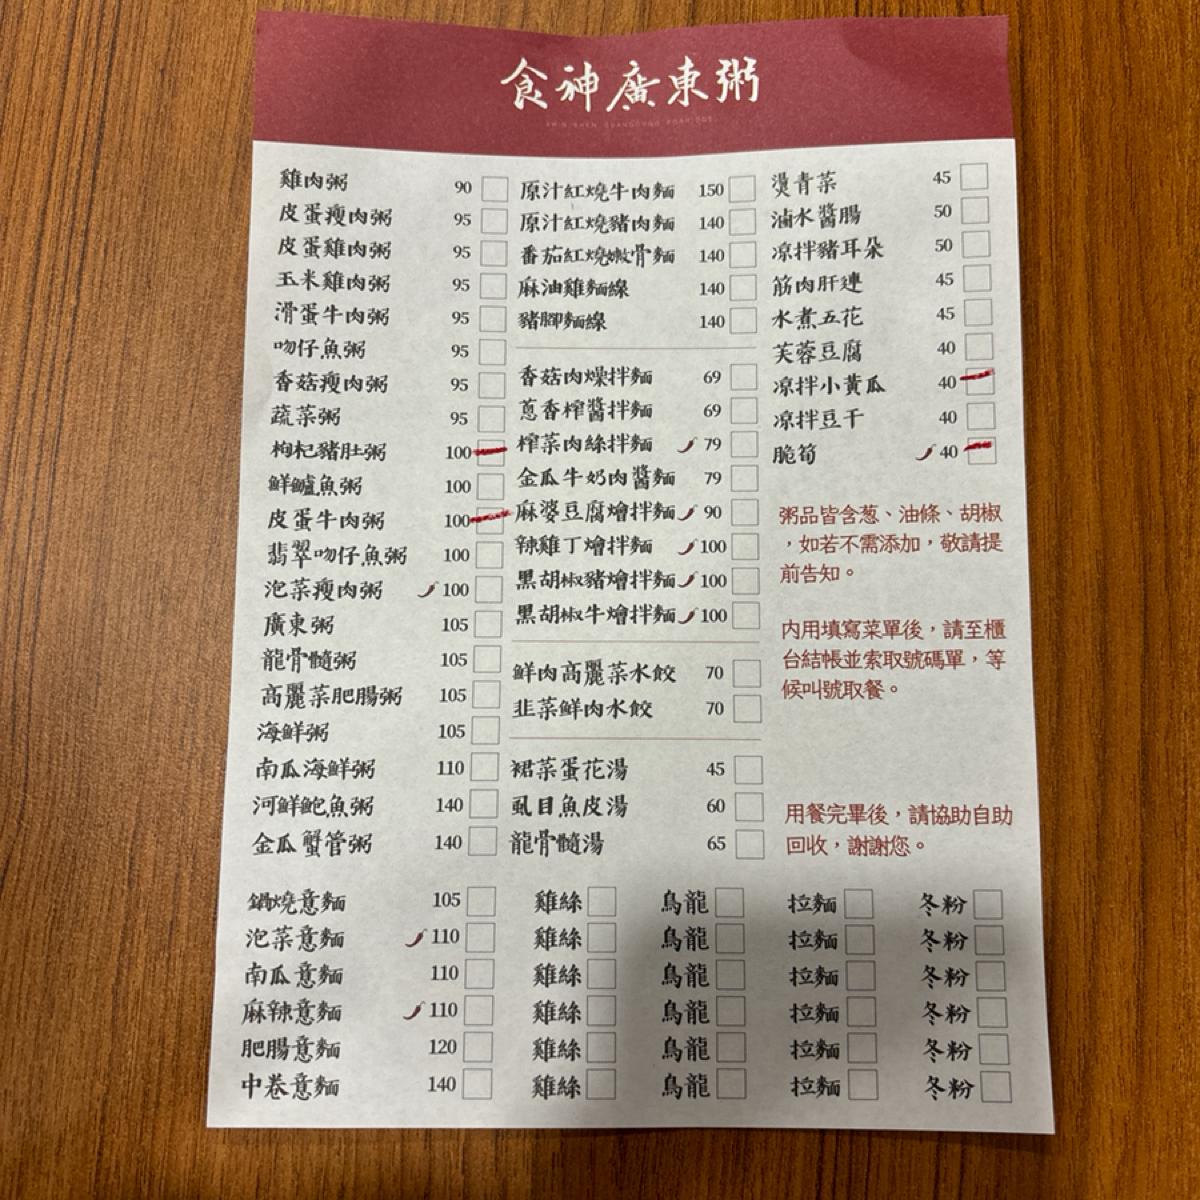 食神廣東粥
雞肉粥 90
皮蛋瘦肉粥 95
皮蛋雞肉粥 95
玉米雞肉粥 95
滑蛋牛肉粥 95
吻仔魚粥 95
香菇瘦肉粥 95
蔬菜粥 95
枸杞豬肚粥 100
鮮鱸魚粥 100
皮蛋牛肉粥 100
翡翠吻仔魚粥 100
泡菜瘦肉粥 100
廣東粥 105
龍骨髓粥 105
高麗菜肥腸粥 105
海鮮粥 105
南瓜海鮮粥 110
河鮮鮑魚粥 140
金瓜蟹管粥 140
原汁紅燒牛肉麵 150
原汁紅燒豬肉麵 140
番茄紅燒嫩骨麵 140
麻油雞麵線 140
豬腳麵線 140
香菇肉燥拌麵 69
蔥香榨醬拌麵 69
榨菜肉絲拌麵 79
金瓜牛奶肉醬麵 79
麻婆豆腐燴拌麵 90
辣雞丁燴拌麵 100
黑胡椒豬燴拌麵 100
黑胡椒牛燴拌麵 100
鮮肉高麗菜水餃 70
韭菜鮮肉水餃 70
裙菜蛋花湯 45
虱目魚皮湯 60
龍骨髓湯 65
燙青菜 45
滷水醬腸 50
凉拌豬耳朵 50
筋肉肝連 45
水煮五花 45
芙蓉豆腐 40
凉拌小黃瓜 40
凉拌豆干 40
脆筍 40
粥品皆含葱、油條、胡椒
，如若不需添加，敬請提
前告知。
內用填寫菜單後，請至櫃
台結帳並索取號碼單，等
候叫號取餐。
用餐完畢後，請協助自助
回收，謝謝您。
鍋燒意麵 105 雞絲 烏龍 拉麵 冬粉
泡菜意麵 110 雞絲 烏龍 拉麵 冬粉
南瓜意麵 110 雞絲 烏龍 拉麵 冬粉
麻辣意麵 110 雞絲 烏龍 拉麵 冬粉
肥腸意麵 120 雞絲 烏龍 拉麵 冬粉
中卷意麵 140 雞絲 烏龍 拉麵 冬粉